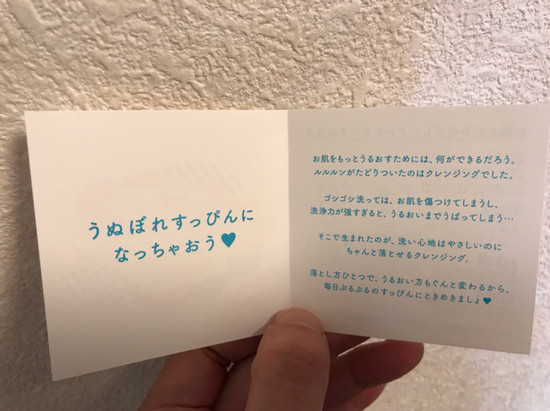 うぬぼれすっぴんに
なっちゃおう♥
お肌をもっとうるおすためには、何ができるだろう。
ルルルンがたどりついたのはクレンジングでした。
ゴシゴシ洗っては、お肌を傷つけてしまうし、
洗浄力が強すぎると、うるおいまでうばってしまう…
そこで生まれたのが、洗い心地はやさしいのに
ちゃんと落とせるクレンジング。
落とし方ひとつで、うるおい方もぐんと変わるから。
毎日ぷるぷるのすっぴんにときめきまし♪♥